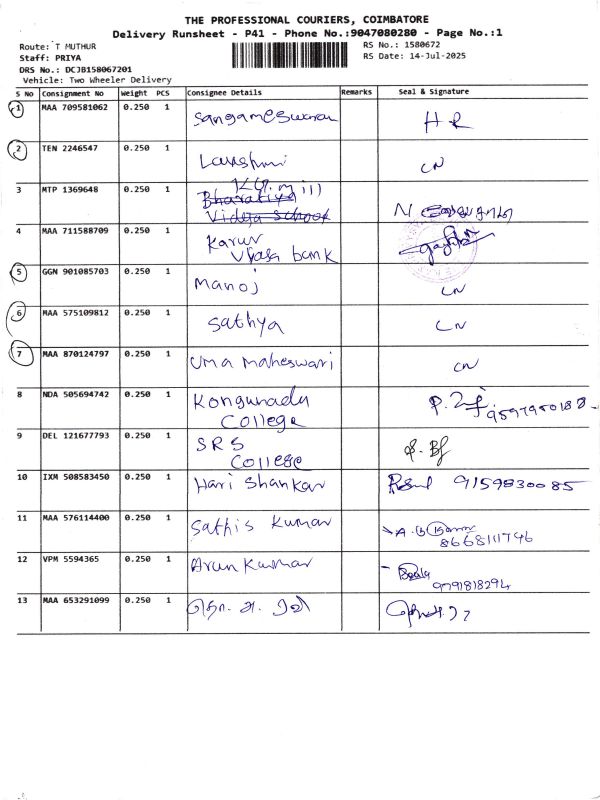 THE PROFESSIONAL COURIERS, COIMBATORE
Delivery Runsheet - P41 - Phone No.:9047080280 - Page No.:1
Route: T MUTHUR
RS No.: 1580672
Staff: PRIYA
RS Date: 14-Jul-2025
DRS No.: DCJB158067201
Vehicle: Two Wheeler Delivery
S No Consignment No Weight PCS Consignee Details Remarks Seal & Signature
1 MAA 709581062 0.250 1 Sangameswaran H R
2 TEN 2246547 0.250 1 Lakshmi CN
3 MTP 1369648 0.250 1 Bharatiya Vidya School N
4 MAA 711588709 0.250 1 Karur Vyasa bank
5 GGN 901085703 0.250 1 Manoj CN
6 MAA 575109812 0.250 1 Sathya CN
7 MAA 870124797 0.250 1 Uma Maheswari CN
8 NDA 505694742 0.250 1 Kongunadu College
9 DEL 121677793 0.250 1 SRS College
10 IXM 508583450 0.250 1 Hari Shankar 9159830085
11 MAA 576114400 0.250 1 Sathis Kumar 8668111746
12 VPM 5594365 0.250 1 Arun Kumar 9791818294
13 MAA 653291099 0.250 1